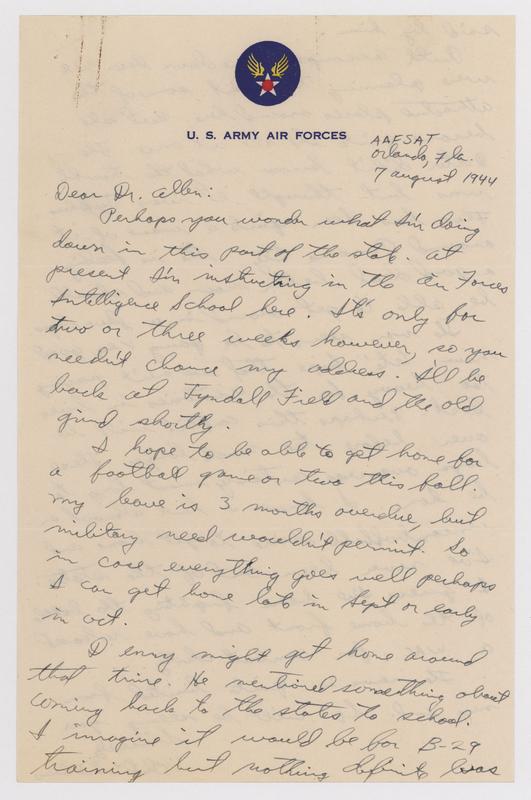 U. S. ARMY AIR FORCES
AAFSAT
Orlando, Fla.
7 August 1944
Dear Dr. Allen:
Perhaps you wonder what I'm doing
down in this part of the state. At
present I'm instructing in the Air Forces
Intelligence School here. It's only for
two or three weeks however, so you
needn't change my address. I'll be
back at Tyndall Field and the old
grind shortly.
I hope to be able to get home for
a football game or two this fall.
My leave is 3 months overdue, but
military need wouldn't permit. So
in case everything goes well perhaps
I can get home late in Sept or early
in Oct.
might get home around
that time. He mentioned something about
coming back to the states to school.
I imagine it would be for B-29
training but nothing definite was